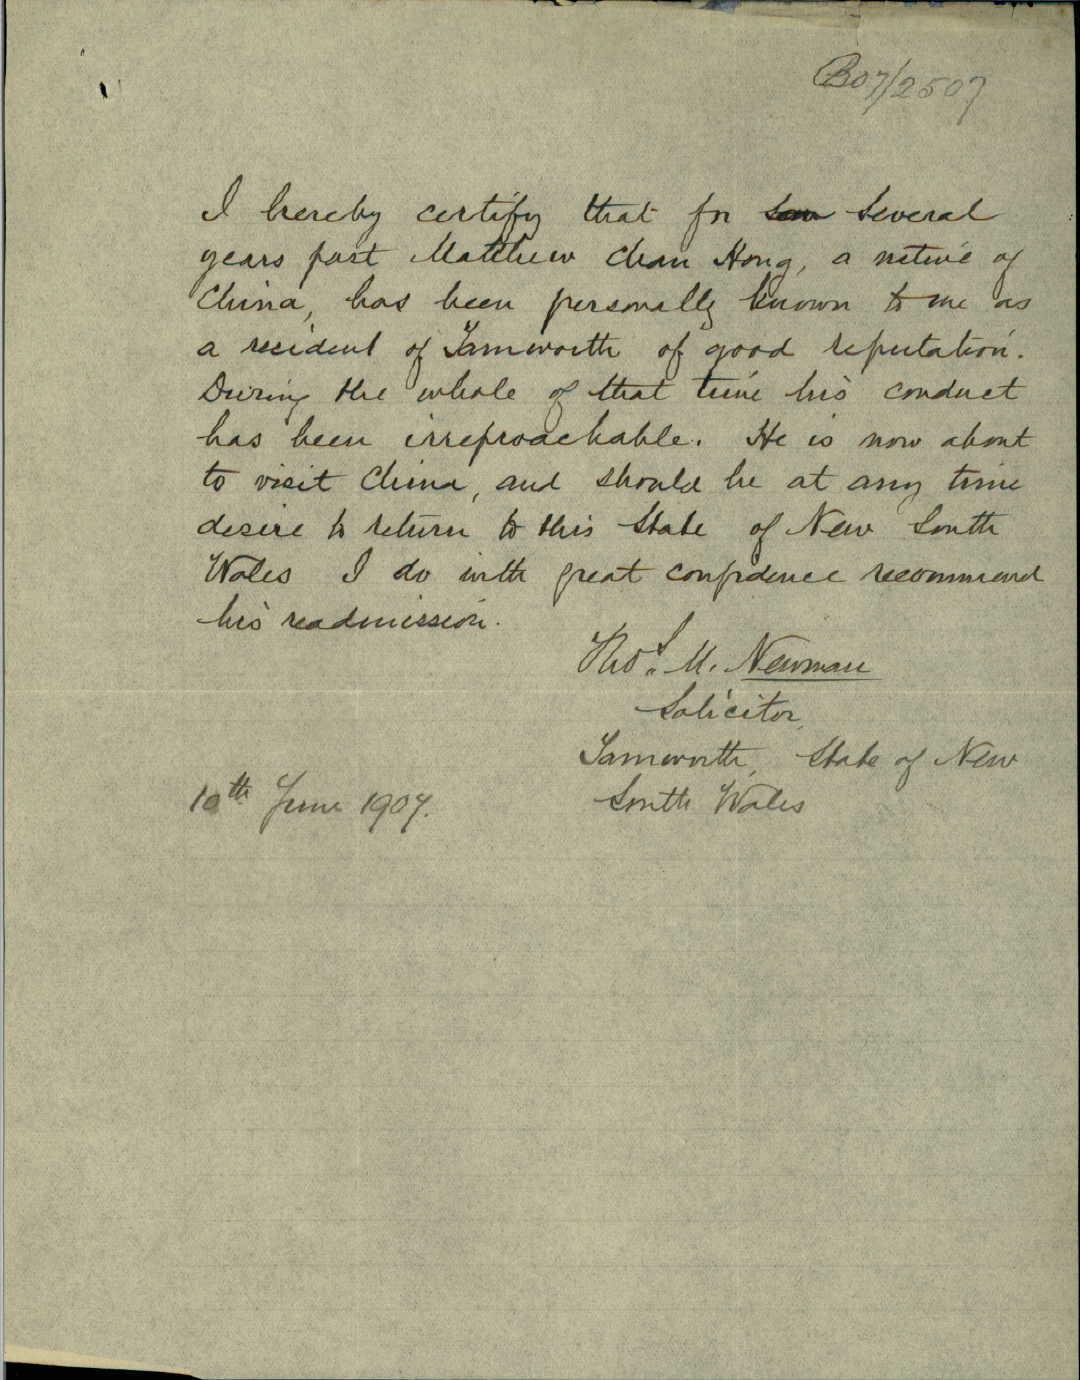 B07/2507
I hereby certify that for som several
years past Matthew Chan Hong, a native of
China, has been personally known to me as
a resident of Tamworth of good reputation.
During the whole of that time his conduct
has been irreproachable. He is now about
to visit China, and should he at any time
desire to return to this State of New South
Wales I do with great confidence recommend
his readmission.
Thos. M. Newman
Solicitor,
Tamworth, State of New
South Wales
10th June 1907.